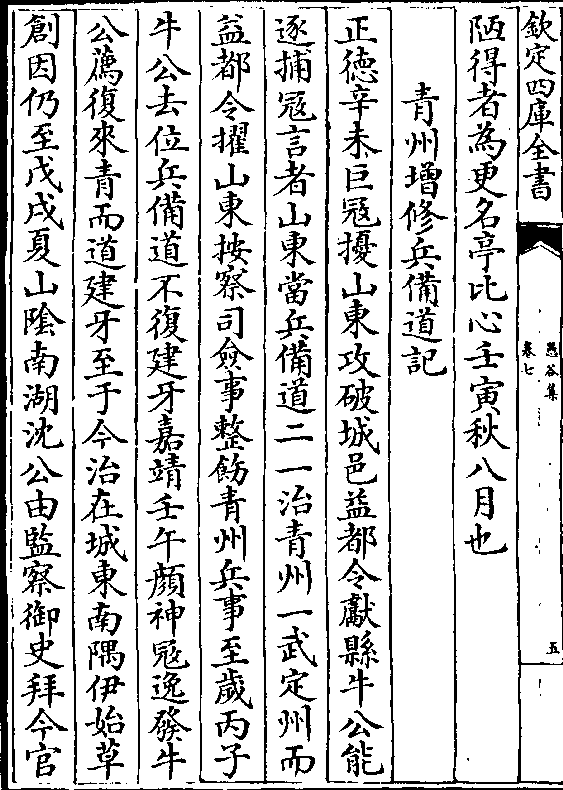 欽定四庫全書
愚谷集
卷七
五
陋得者為更名亭比心壬寅秋八月也
青州增修兵備道記
正德辛未巨冦擾山東攻破城邑益都令獻縣牛公能
逐捕冦言者山東當兵備道二一治青州一武定州而
益都令擢山東按察司僉事整飭青州兵事至歲丙子
牛公去位兵備道不復建牙嘉靖壬午顔神冦逸發牛
公薦復來青而道建牙至于今治在城東南隅伊始草
創因仍至戊戌夏山隂南湖沈公由監察御史拜今官